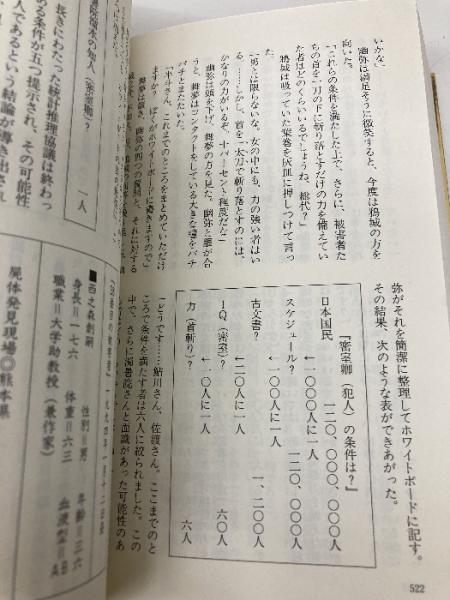 いかな。」
幽弥は満足そうに微笑すると、今度は鴉城の方を
向いた。
「これらの条件を満たした上で、さらに、被害者た
ちの首を一刀の下に斬り落とすだけの力を備えてい
た者はどのくらいいるでしょうね、総代?」
鴉城は吸っていた葉巻を灰皿に押しつけて言っ
た。
「男とは限らないな。女の中にも、力の強い者はい
る。……しかし、首を一太刀で斬り落とすのには、
かなりの力がいるぞ。十パーセント程度だな」
幽弥は頭を下げ、舞夢の方を見た。幽弥と眼が合
うと、舞夢はコンタクトをしている大きな瞳をパチ
パチとまたたいた。
「半斗さん、これまでのところをまとめていただけ
ますか? ぼくがホワイトボードに書きますので」
舞夢は頷き、幽弥の四つの質問と、それに対する
弥がそれを簡潔に整理してホワイトボードに記す。
その結果、次のような表ができあがった。
『密室卿(犯人)の条件は?』
日本国民 一二〇、〇〇〇、〇〇〇人
←一〇〇〇人に一人
スケジュール? 一二〇、〇〇〇人
←一〇〇人に一人
古文書? 一、二〇〇人
←二〇人に一人
IQ(密室)? 六〇人
←一〇人に一人
力(首斬り)? 六人
「どうです……鮎川さん、佐渡さん。ここまでのと
ころで条件を満たす者は六人に絞られました。この
中で、さらに濁暑院さんと面識があった可能性のあ
522
(密室卿)? 一人
長きにわたった統計推理協議は終わっ
る条件が五つ提示され、その可能性
人であるという結論が導き出され
■西之森創嗣
性別=男 年齢=三六
身長=一七六 体重=六三 血液型=AB
職業=大学助教授(兼作家)
屍体発見現場◎熊本県